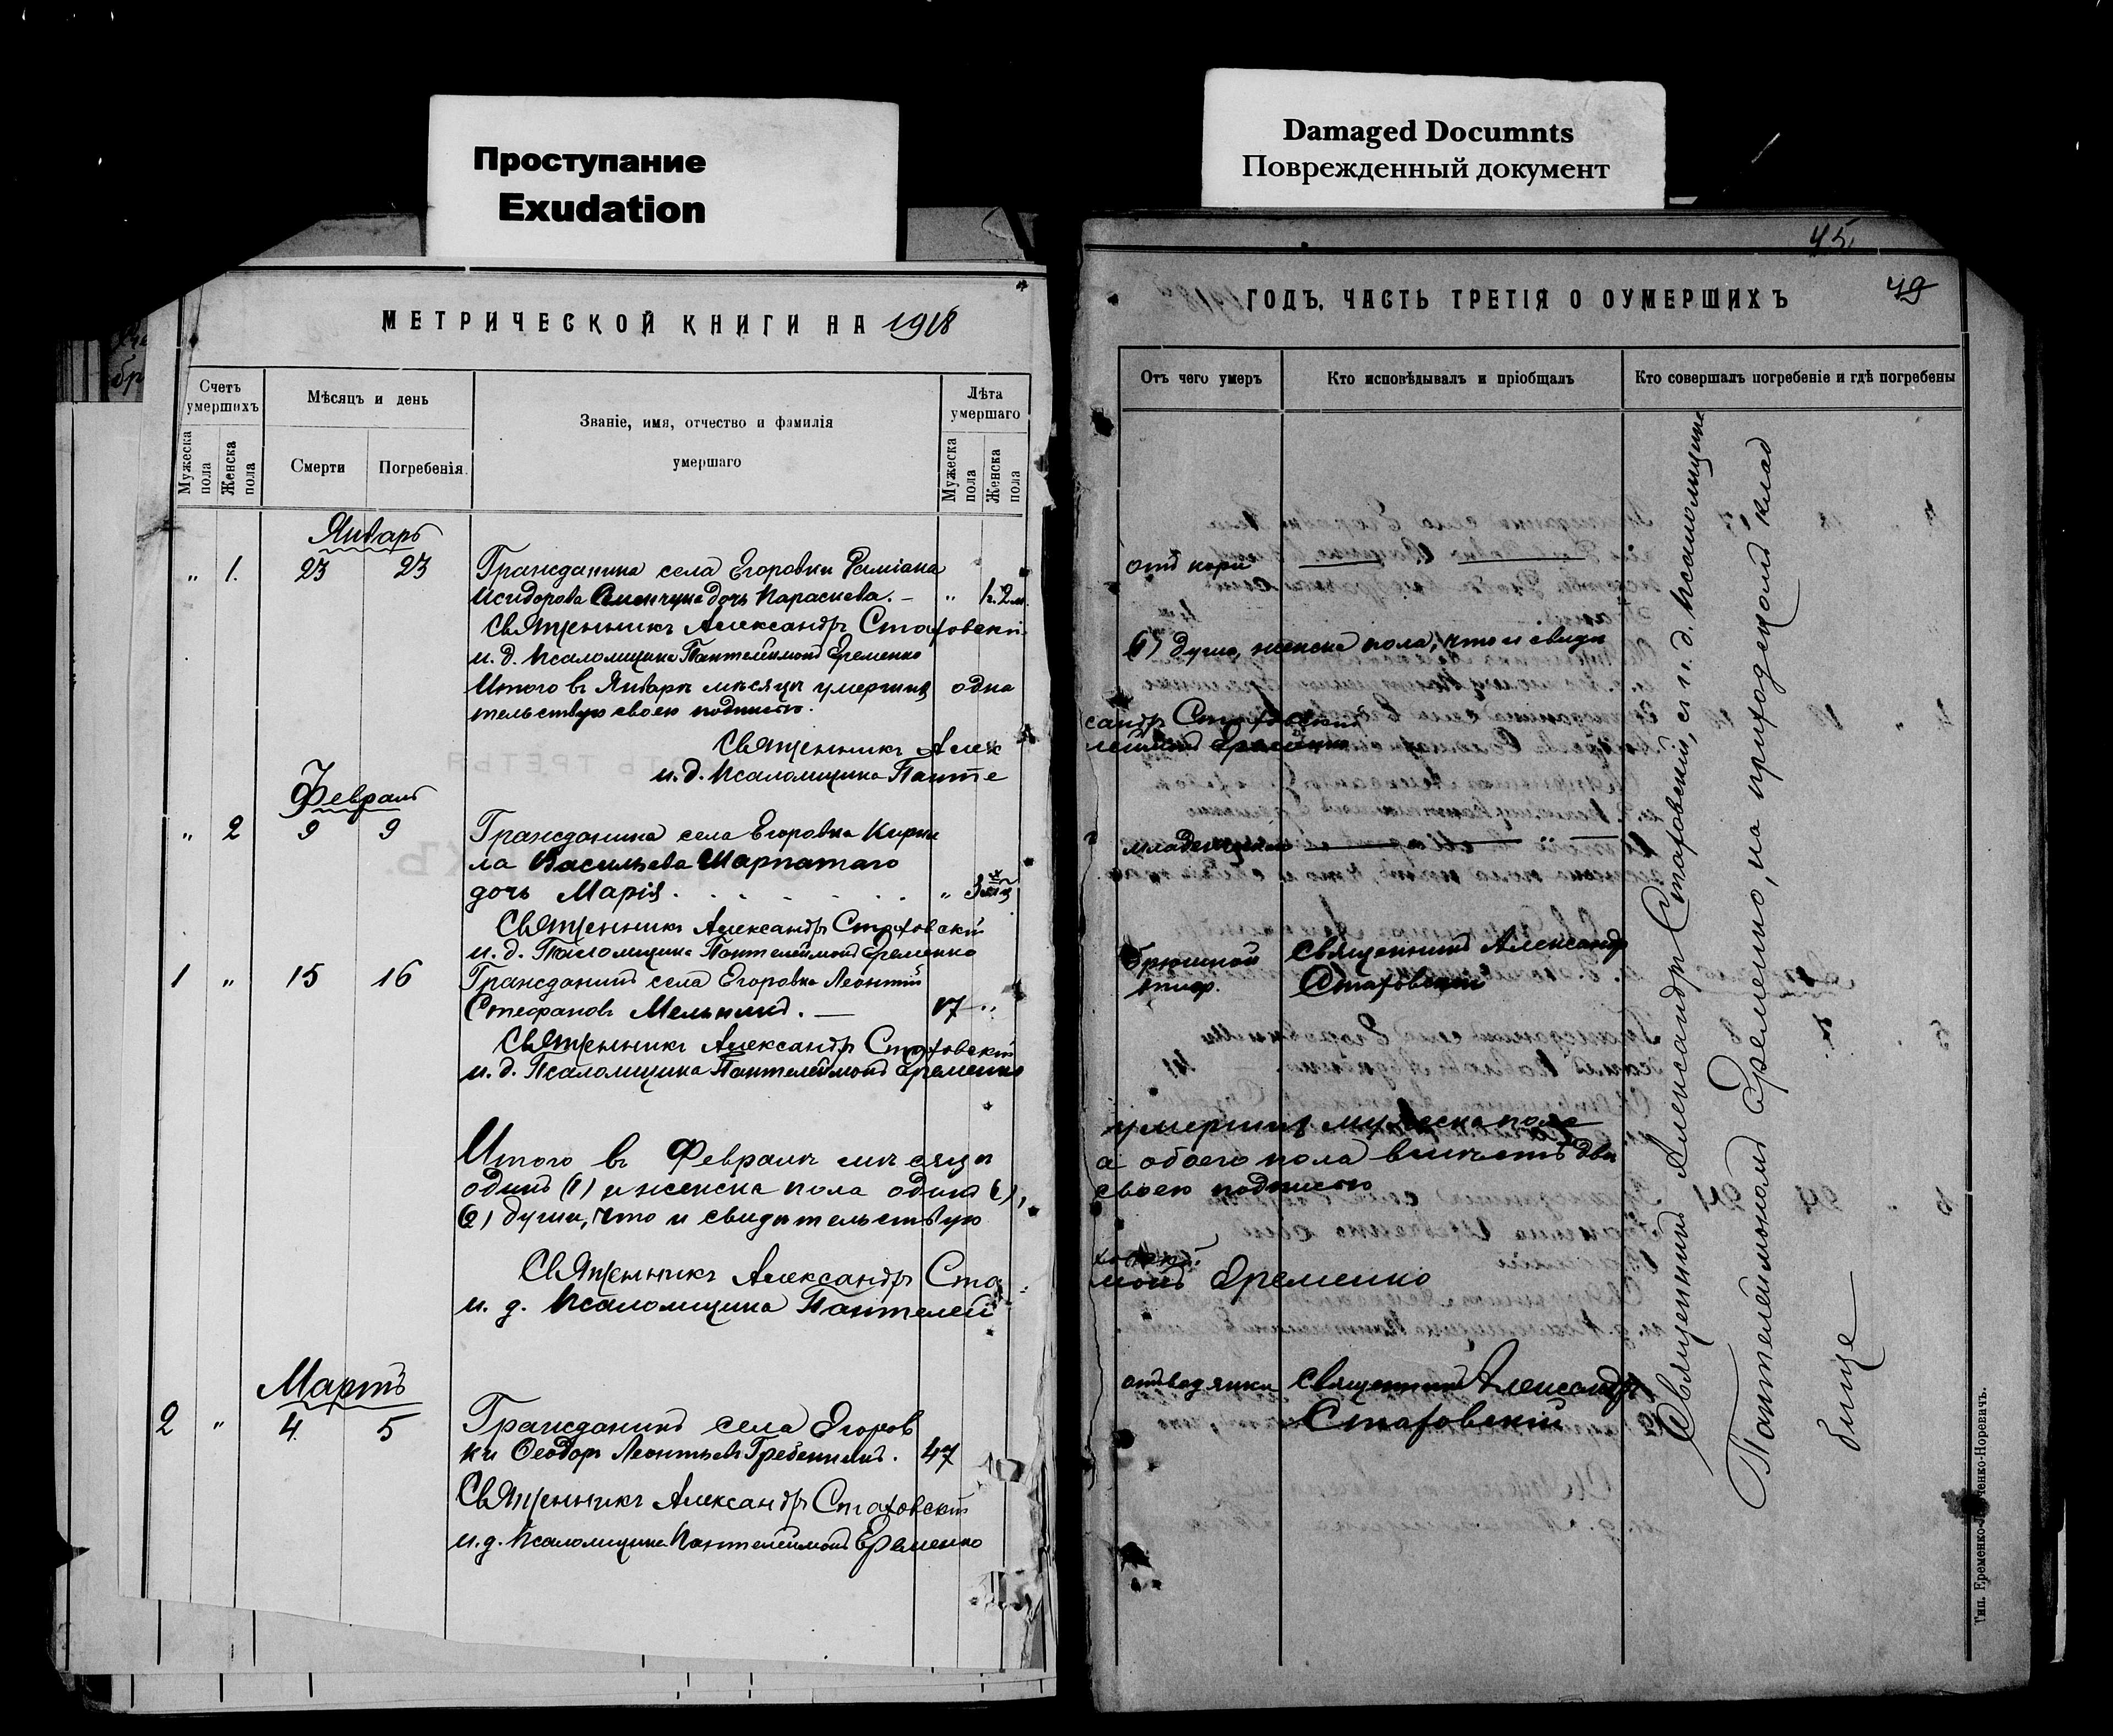 Проступание
Exudation
Damaged Documnts
Поврежденный документ
МЕТРИЧЕСКОЙ КНИГИ НА 1918
Счетъ умершихъ
Мужеска пола
Женска пола
Мѣсяцъ и день
Смерти
Погребенія.
Званіе, имя, отчество и фамилія
умершаго
Лѣта умершаго
Мужеска пола
Женска пола
Январь
„ 1. 23 23 Гражданина села Егоровки
Исидорова дочь Параскева. — „ 1г. 2м.
Священникъ Александръ Стаховскій
и. д. Псаломщика Пантелеимонъ Еременко
Итого въ Январѣ мѣсяцѣ умершихъ одна
тельствую своею подписью.
Священникъ Алек
и. д. Псаломщика Панте
Февраль
„ 2 9 9 Гражданина села Егоровка Кири
ла Васильева Шарпатаго
дочь Марія . . . . . „ 3
Священникъ Александръ Стаховскій
и. д. Псаломщика Пантелеймонъ Еременко
1 „ 15 16 Гражданинъ села Егоровка Леонтій
Стефановъ Мельникъ. — 17 „
Священникъ Александръ Стаховскій
и. д. Псаломщика Пантелеймонъ Еременко
Итого въ Февралѣ мѣсяцѣ
одинъ (1) и женска пола одна (1),
(2) души, что и свидѣтельствую
Священникъ Александръ Ста
и. д. Псаломщика Пантелей
Мартъ
2 „ 4 5 Гражданинъ села Егоров
ки Феодоръ Леонтьевъ Гребенникъ. 47
Священникъ Александръ Стаховскій
и. д. Псаломщика Пантелеймонъ Еременко
45
49
ГОДЪ, ЧАСТЬ ТРЕТІЯ О ОУМЕРШИХЪ
Отъ чего умеръ
Кто исповѣдывалъ и пріобщалъ
Кто совершалъ погребеніе и гдѣ погребены
отъ кори
(1) душа, женска пола, что и свидѣ
сандръ Стаховскій
леймонъ Еременко
Брюшной Священникъ Александръ
тифъ. Стаховскій
умершихъ мужеска пола
а обоего пола вмѣстѣ двѣ
своею подписью
ховскій.
монъ Еременко
отъ водянки Священникъ Александръ
Стаховскій
Священникъ Александръ Стаховскій, съ и. д. Псаломщика
Пантелеймономъ Еременко, на приходскомъ клад
бище
Тип. Еременко-
ченко-Норевичъ.